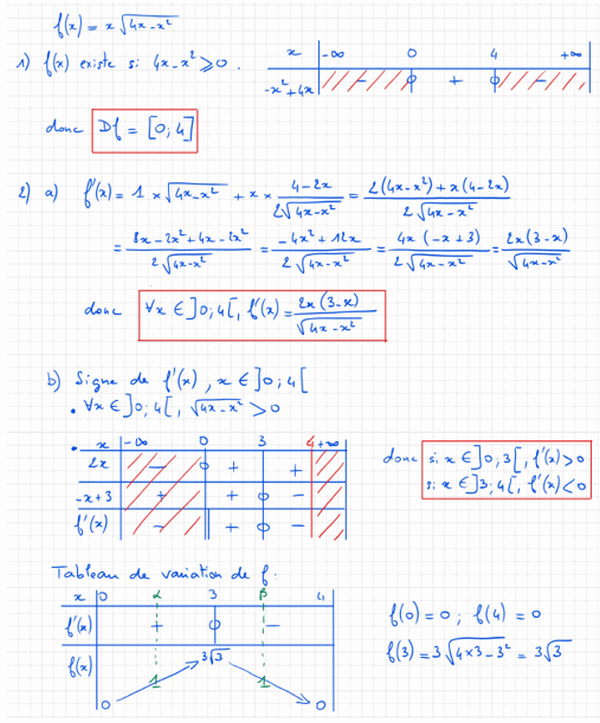 f(x) = x √(4x-x²)
1) f(x) existe si 4x-x² ⩾ 0.
x | -∞ 0 4 +∞
-x²+4x | - 0 + 0 -
donc Df = [0;4]
2) a) f'(x) = 1 × √(4x-x²) + x × (4-2x)/(2√(4x-x²)) = (2(4x-x²)+x(4-2x))/(2√(4x-x²))
= (8x-2x²+4x-2x²)/(2√(4x-x²)) = (-4x²+12x)/(2√(4x-x²)) = (4x(-x+3))/(2√(4x-x²)) = (2x(3-x))/(√(4x-x²))
donc ∀x ∈ ]0;4[, f'(x) = (2x(3-x))/(√(4x-x²))
b) Signe de f'(x), x ∈ ]0;4[
• ∀x ∈ ]0;4[, √(4x-x²) > 0
• x | -∞ 0 3 4 +∞
2x | - 0 + +
-x+3 | + + 0 -
f'(x) | - || + 0 -
donc si x ∈ ]0;3[, f'(x)>0
si x ∈ ]3;4[, f'(x)<0
Tableau de variation de f.
x | 0 α 3 β 4
f'(x) | + 0 -
f(x) | 0 1 3√3 1 0
f(0) = 0 ; f(4) = 0
f(3) = 3√(4×3-3²) = 3√3